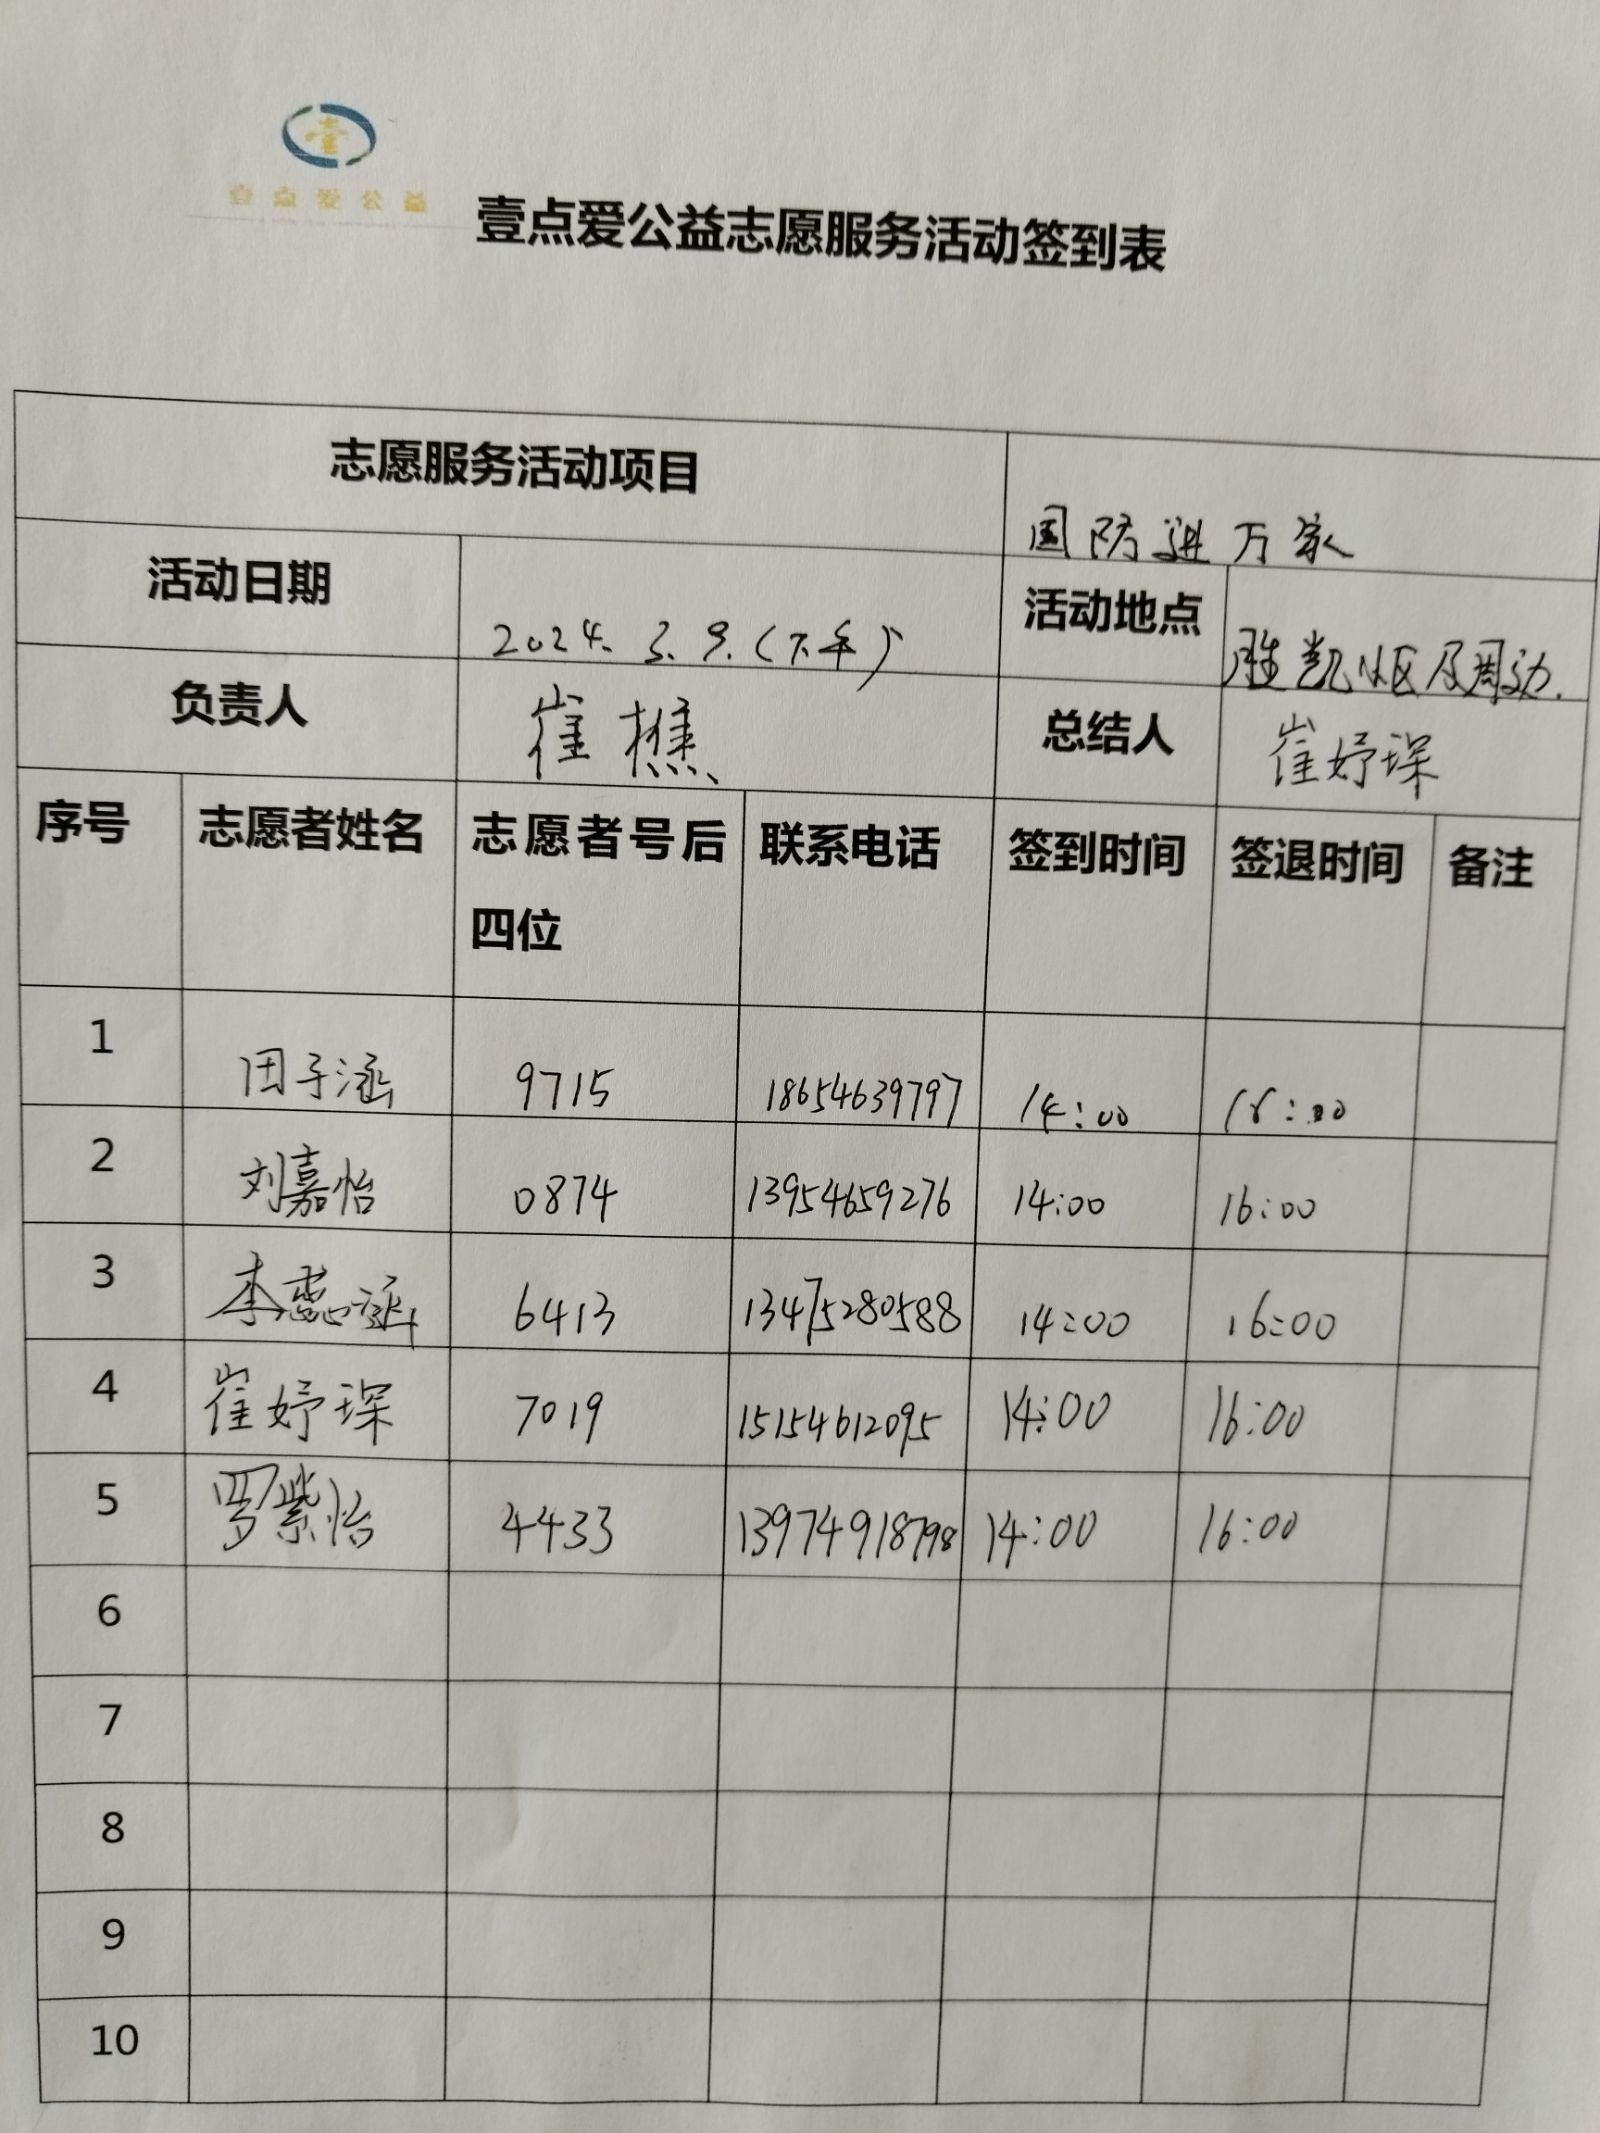 壹
壹点爱公益
壹点爱公益志愿服务活动签到表
志愿服务活动项目 国防进万家
活动日期 2024.3.9.(下午) 活动地点 胜凯小区及周边.
负责人 崔樵 总结人 崔妤琛
序号 志愿者姓名 志愿者号后 联系电话 签到时间 签退时间 备注
四位
1 田子涵 9715 18654639797 14:00 16:00
2 刘嘉怡 0874 13954659276 14:00 16:00
3 李蕊涵 6413 13475280588 14:00 16:00
4 崔妤琛 7019 15154612095 14:00 16:00
5 罗紫怡 4433 13974918798 14:00 16:00
6
7
8
9
10